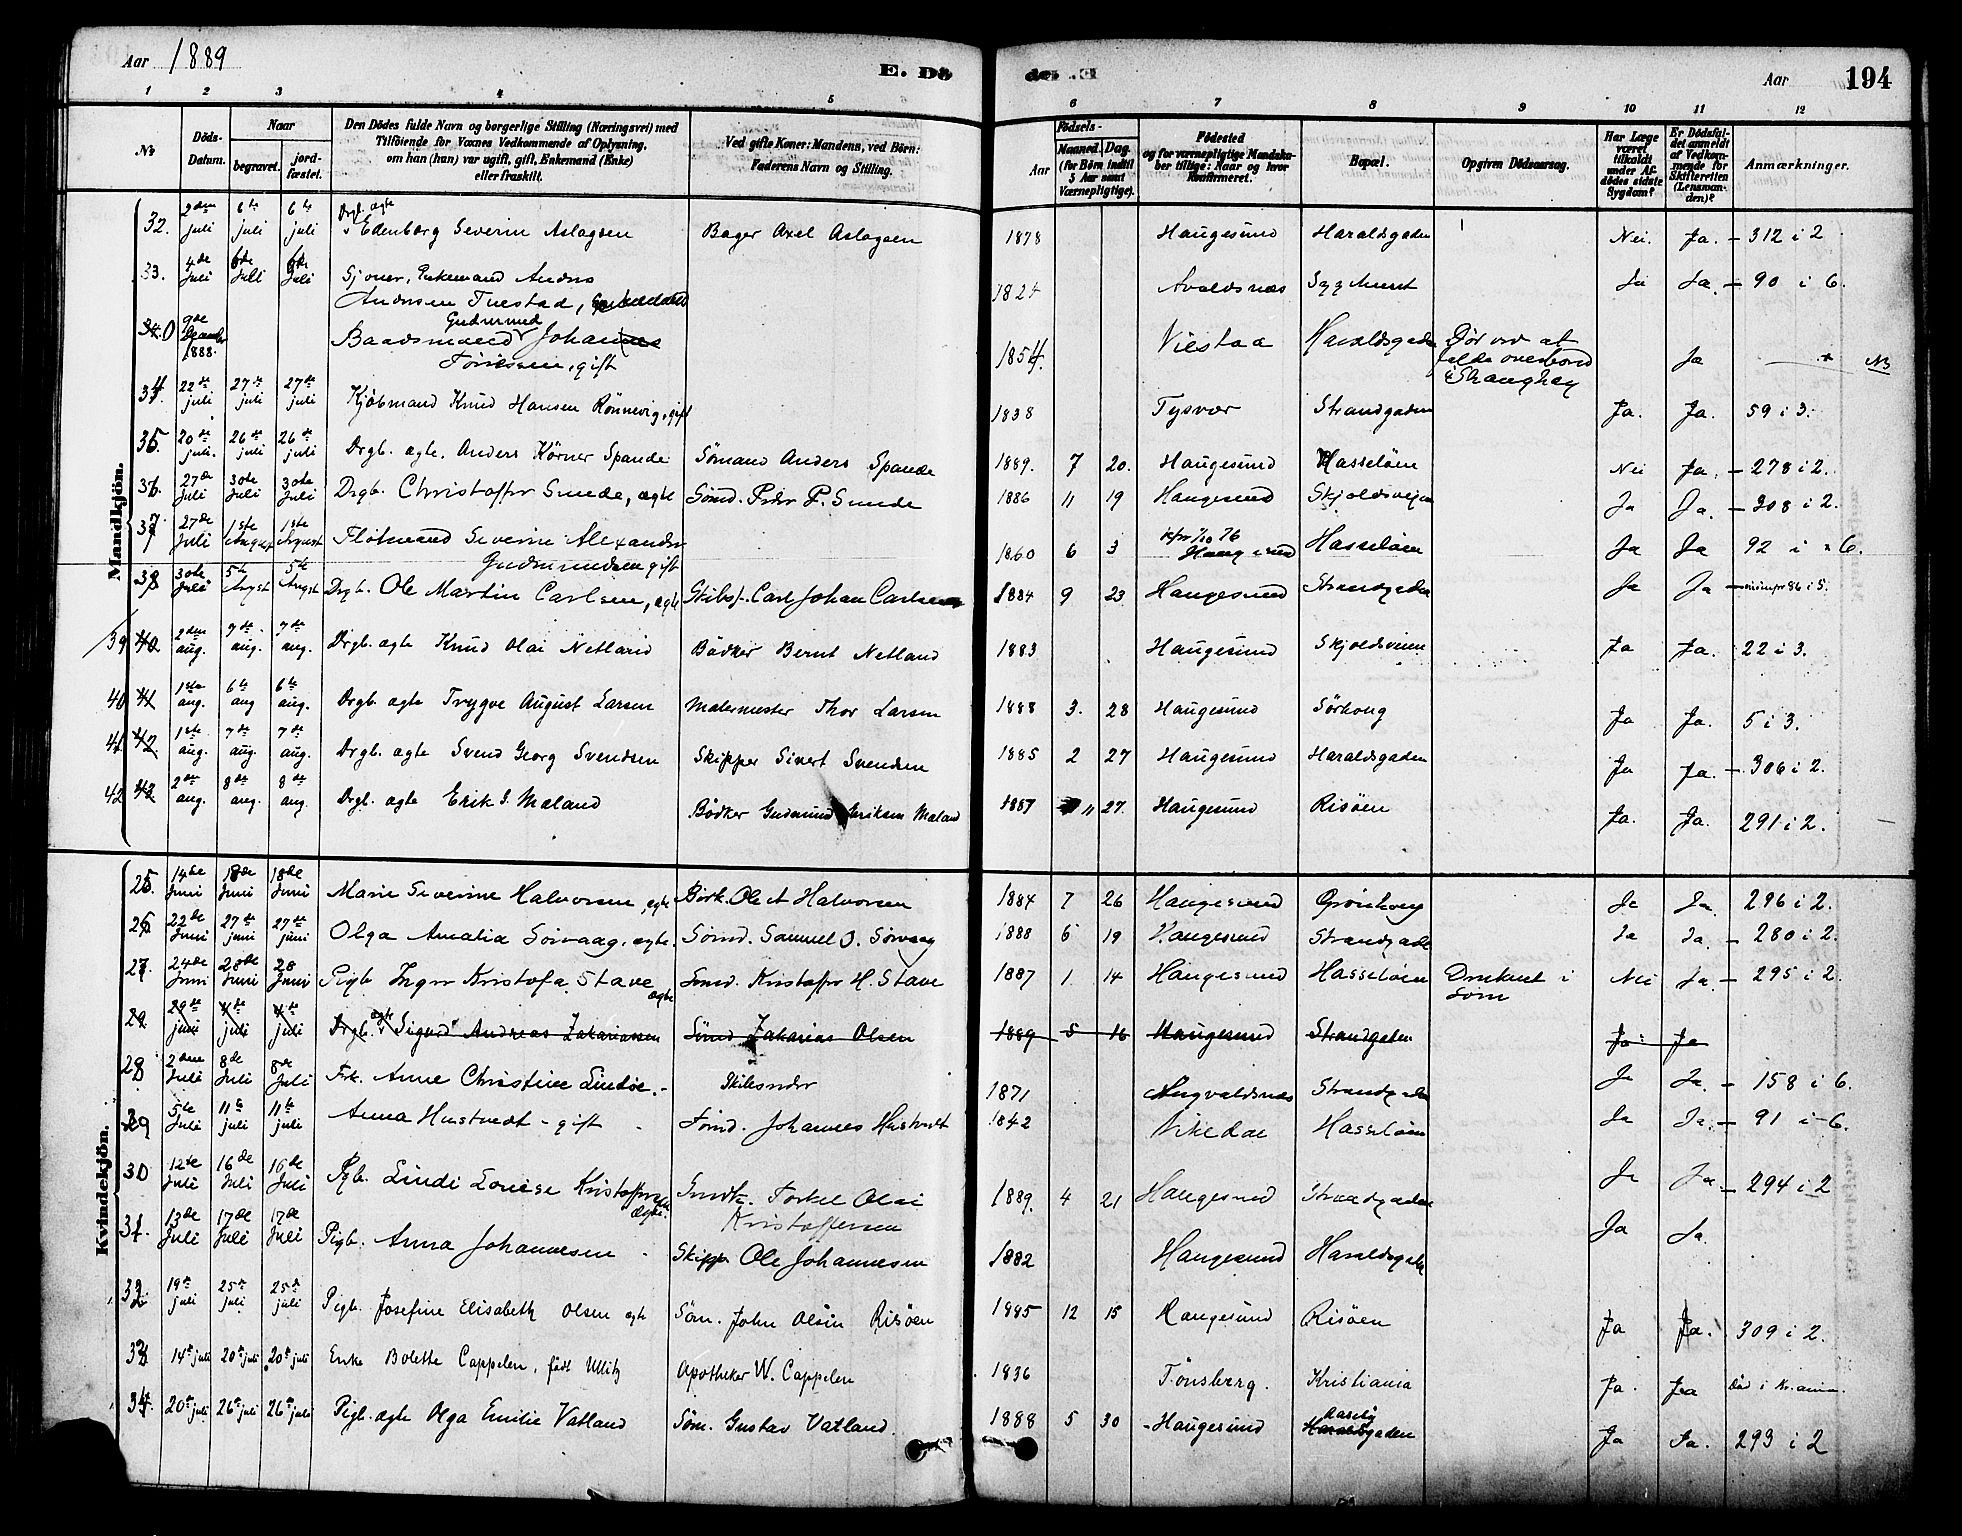 Aar 1889
E. Dö
E. Dö
Aar 194
1 2 3 4 5 6 7 8 9 10 11 12
No
Döds-Datum.
Naar
begravet.
jord-fæstet.
Den Dödes fulde Navn og borgerlige Stilling (Næringsvei) med
Tilföiende for Voxnes Vedkommende af Oplysning,
om han (hun) var ugift, gift, Enkemand (Enke)
eller fraskilt.
Ved gifte Koner: Mandens, ved Börn:
Faderens Navn og Stilling.
Födsels-
Aar
Maaned. Dag.
(for Börn indtil
5 Aar samt
Værnepligtige).
Födested
og for værnepligtige Mandska-
ber tillige: Naar og hvor
konfirmeret.
Bopæl.
Opgiven Dödsaarsag.
Har Læge
været
tilkaldt
under Af-
dödes sidste
Sygdom?
Er Dödsfal-
det anmeldt
af Vedkom-
mende for
Skifteretten
(Lensman-
den)?
Anmærkninger.
Mandkjön.
32. 2den juli 6te juli 6te juli Drgb. ægte Edenborg Severin Aslagsen Bager Axel Aslagsen 1878 Haugesund Haraldsgaden Nei. Ja. - 312 i 2
33. 4de Juli 6de Juli 6de Juli Sjouer, Enkemand Andres 1824 Avaldsnæs Sygehuset Ja Ja. - 90 i 6.
Andersen Tuestad,
0 9de 1888. Baadsmand Gudmund 1854. Viestaa Haraldsgaden Dör ved at
Tönnesen, gift falde overbord Ja NB
i Shanghay
34 22de juli 27de juli 27de juli Kjöbmand Knud Hansen Rönnevig, gift 1838 Tysvær Strandgaden Ja. Ja. 59 i 3.
35. 20de juli. 26de juli 26de juli Drgb. ægte. Anders Körner Spande Sömand Anders Spande 1889. 7 20. Haugesund Hasselöen Nei Ja. - 278 i 2.
36. 27de Juli 30te Juli 30te Juli Drgb. Christoffer Sunde, ægte Sömd. Peder P. Sunde 1886 11 19 Haugesund Skjoldsvejen Ja Ja. - 308 i 2.
37 27de Juli 1ste August 1ste August Flötmand Severin Alexander 1860 6 3 76 Haugesund Hasselöen Ja Ja 92 i 6.
Gudmundsen gift
38. 30te Juli 5te Augst 5te Augst Drgb. Ole Martin Carlsen, ægte Skibsf. Carl Johan Carlsen 1884 9 23 Haugesund Strandgaden Ja Ja 86 i 5.
39 40 2den aug. 7de aug. 7de aug. Drgb. ægte Knud Olai Netland Bödker Bernt Netland 1883 Haugesund Skjoldsveien Ja Ja. 22 i 3.
40 41 1ste aug. 6te aug 6te aug. Drgb. ægte Trygve August Larsen Malermester Thor Larsen 1888 3. 28 Haugesund Sörhoug Ja Ja. 5 i 3.
41 42. 1ste aug. 7de aug. 7de aug. Drgb. ægte Svend Georg Svendsen Skipper Sivert Svendsen 1885 2 27 Haugesund Haraldsgaden Ja Ja. - 306 i 2.
42 43 2de aug. 8de aug. 8de aug. Drgb. ægte Erik G. Maland Bödker Gudmund Eriksen Maland 1887 11 27. Haugesund Risöen Ja. Ja. 291 i 2.
Kvindekjön.
25. 14de Juni 18de Juni 18de Juni Marie Severine Halvorsen, ægte Ole A Halvorsen 1884 7 26 Haugesund Grönhoug Ja Ja. 296 i 2.
26 22de Juni 27de juni 27de juni Olga Amalia Sörvaag, ægte. Sömd. Samuel O. Sörvaag 1888 6 19 Haugesund Strandgade Ja Ja. - 280 i 2.
27. 24de Juni 28de Juni 28 Juni Pigb Inger Kristofa Stave ægte Sömd. Kristoffer H. Stave 1887 1. 14 Haugesund Hasselöen Druknet i Nei Ja. - 295 i 2.
Söen
29 29de juni 4de juli 4de juli Drgb. ægte Sigurd Andreas Zakariassen Sömd Zakarias Olsen 1889 5 16 Haugesund Strandgaden Ja Ja
28 2den Juli 8de Juli 8de Juli Frk. Anne Christine Lindöe. - Skibsreder 1871 Augvaldsnæs Strandgaden Ja Ja - 158 i 6.
29 5te Juli 11te juli 11te juli Anna Hustvedt - gift - Sömd. Johannes Hustvedt 1842 Vikedal Hasselöen Ja Ja. - 91 i 6.
30 12te juli 16de Juli 16de Juli Pgb. Lindi Lovise Kristoffersen ægte. Torkel Olai 1889. 4 21 Haugesund Strandgaden Ja Ja - 294 i 2
Kristoffersen
31. 13de Juli 17de Juli 17de Juli Pigb. Anna Johannesen - Skipper Ole Johannesen 1882 Haugesund Haraldsgade Ja Ja.
32 19de juli 25de juli 25de juli Pigb. Josefine Elisabeth Olsen ægte Söm. John Olsen Risöen 1885 12 15 Haugesund Risöen Ja Ja. 309 i 2.
33 14de juli 20de juli 20de juli Enke Bolette Cappelen, födt Ullitz Apotheker W. Cappelen 1836 Tönsberg. Kristiania Ja. Ja Död i Kr.ania.
34. 20de juli 26de juli 26de juli Pigb. ægte Olga Emilie Vatland Söm. Gustav Vatland. 1888 5 30 - Haugesund gaden Ja Ja. 293 i 2